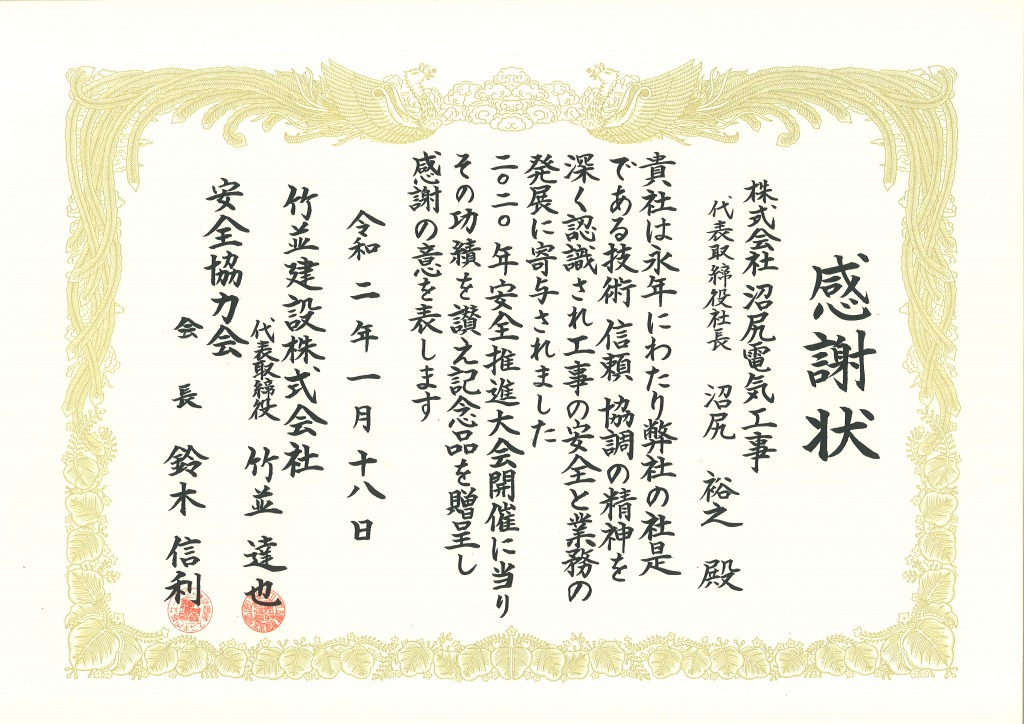 感謝状
株式会社 沼尻電気工事
代表取締役社長 沼尻 裕之 殿
貴社は永年にわたり弊社の社是
である技術 信頼 協調の精神を
深く認識され工事の安全と業務の
発展に寄与されました
二〇二〇年安全推進大会開催に当り
その功績を讃え記念品を贈呈し
感謝の意を表します
令和二年一月十八日
竹並建設株式会社
代表取締役 竹並 達也
安全協力会
会長 鈴木 信利